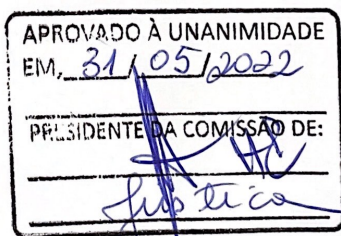 APROVADO À UNANIMIDADE
EM, 31/05/2022
PRESIDENTE DA COMISSÃO DE:
Justiça